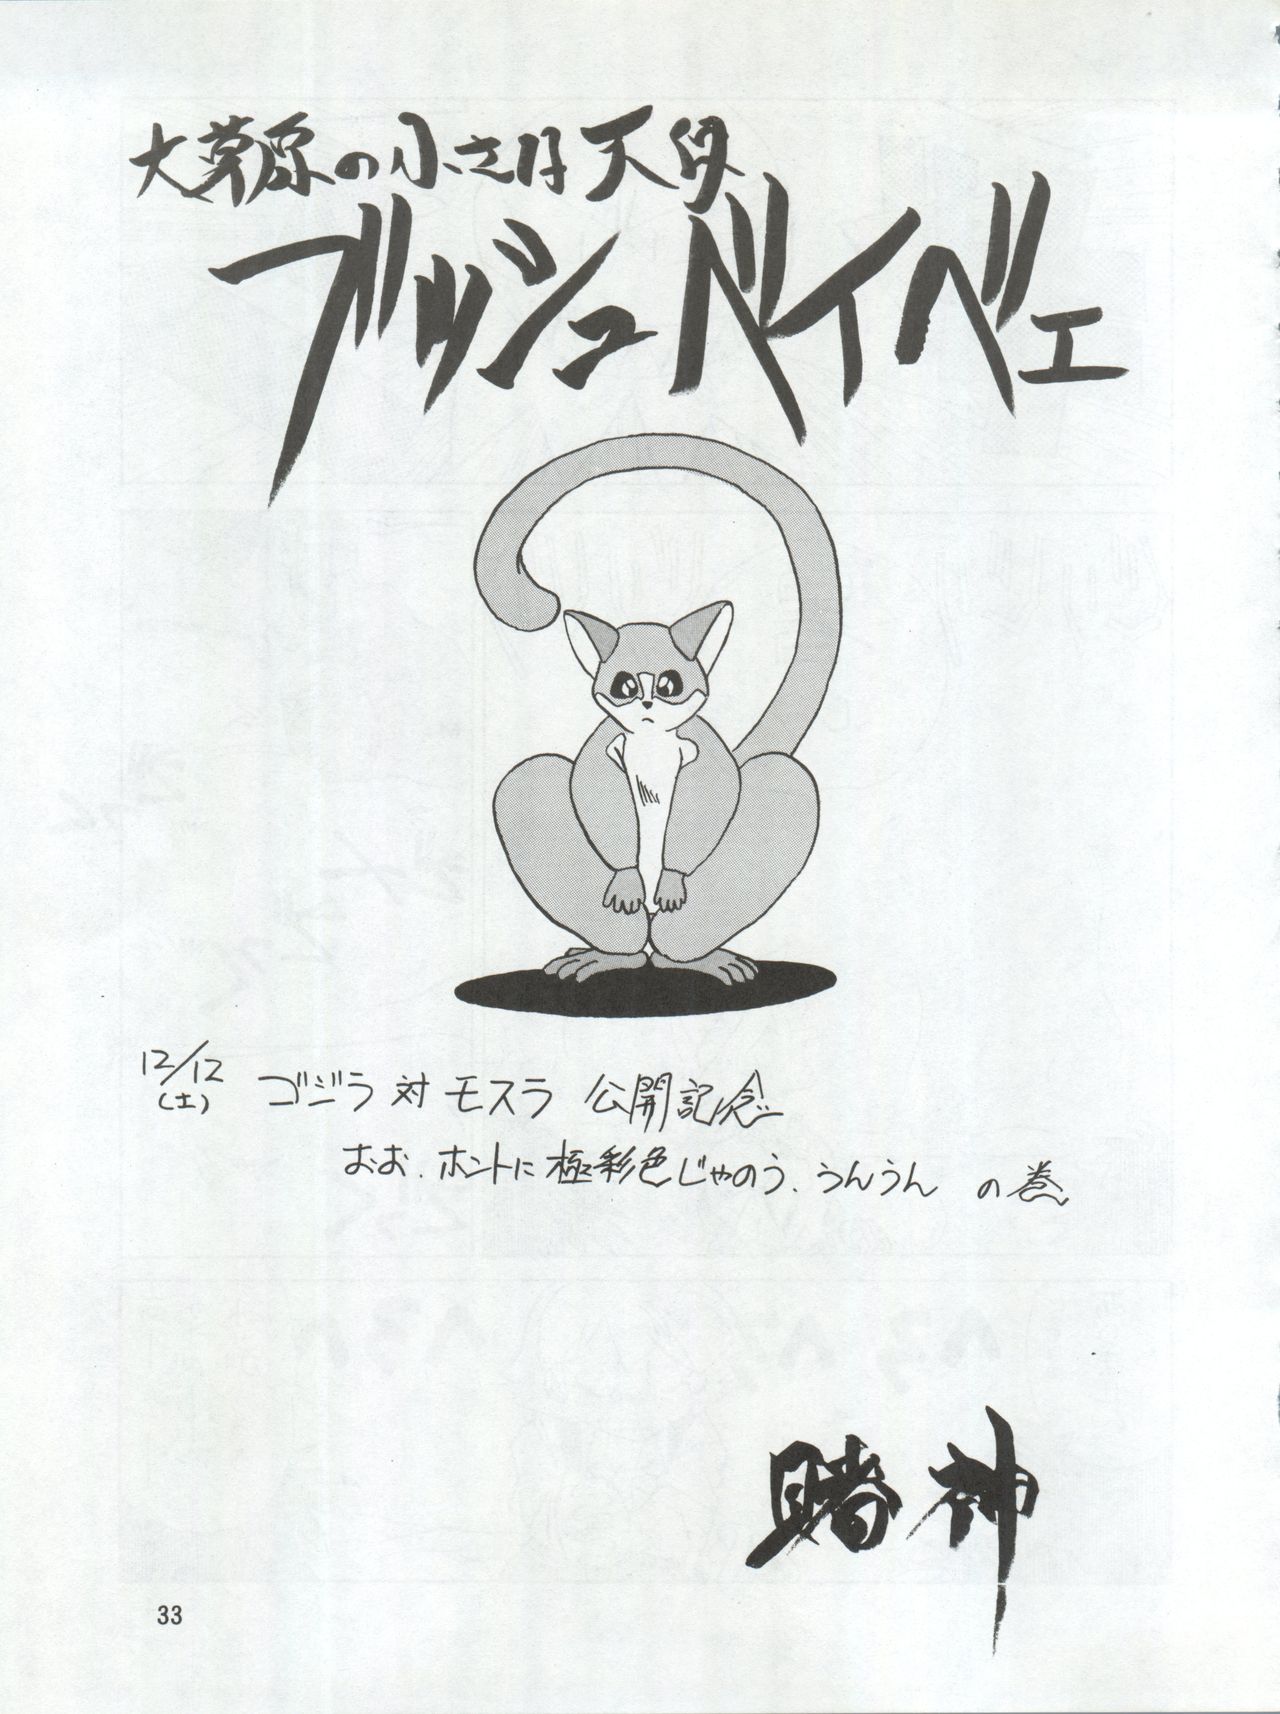 大草原の小さな天使
ブッシュベイベェ
12/12
(土)
ゴジラ対モスラ 公開記念
おお、ホントに極彩色じゃのう、うんうん の巻
賭神
33